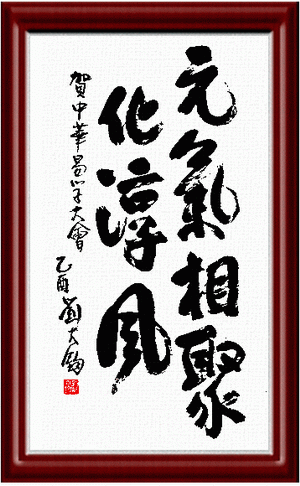 元氣相聚
化淳風
賀中華易学大會
乙酉劉大鈞